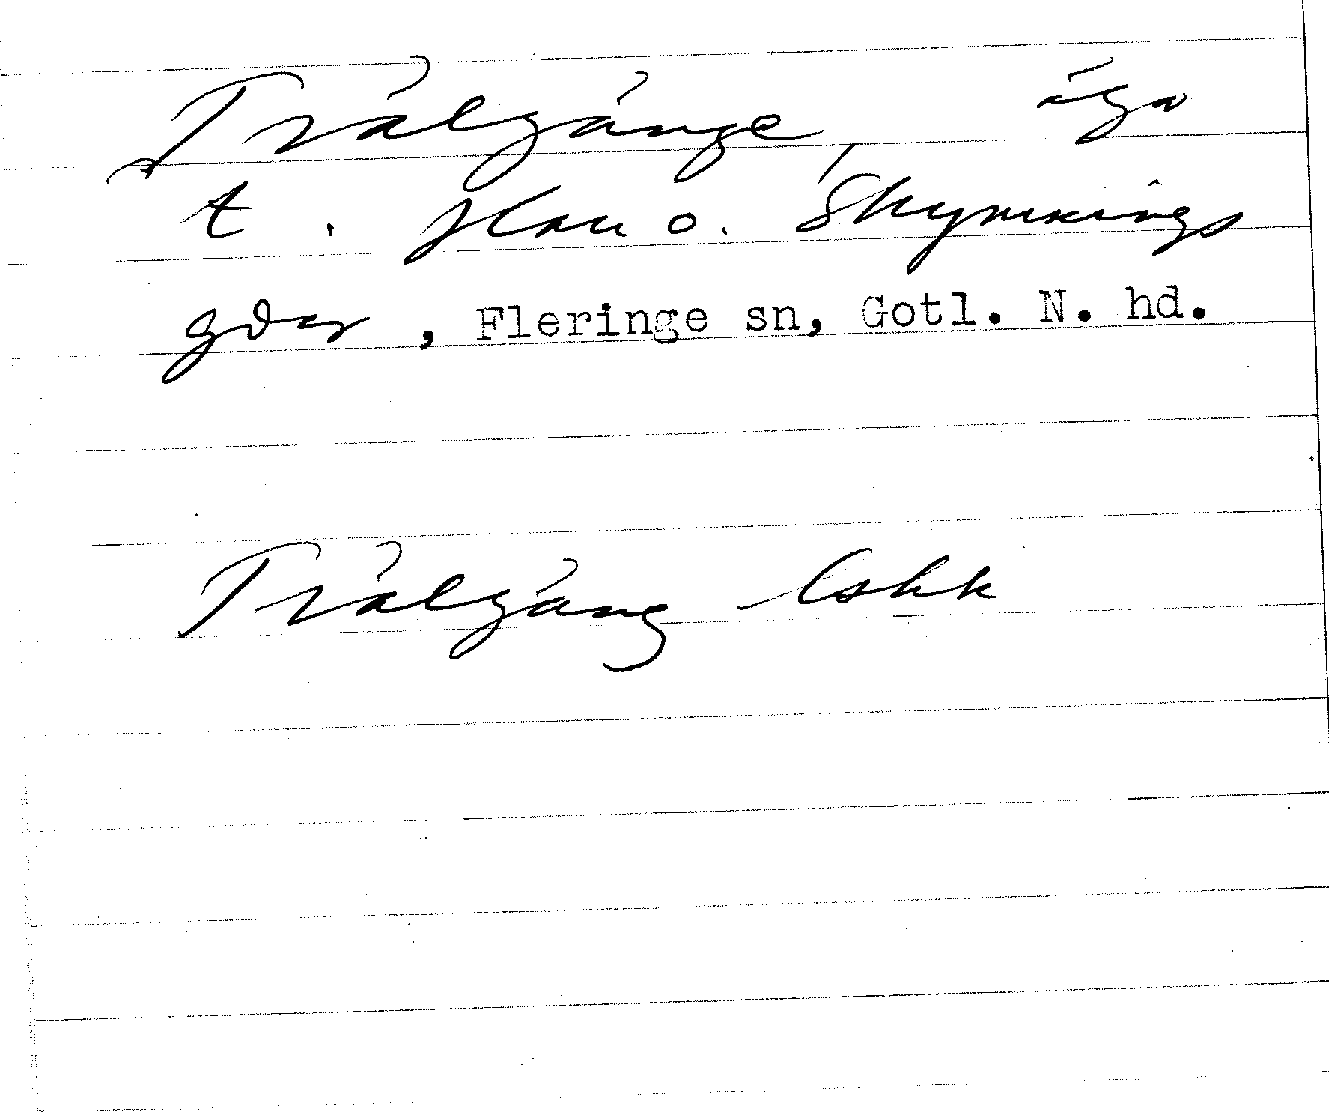 Trälgänge, äga
t. Hau o. Skymmings
gdar, Fleringe sn, Gotl. N. hd.
Trälgäng